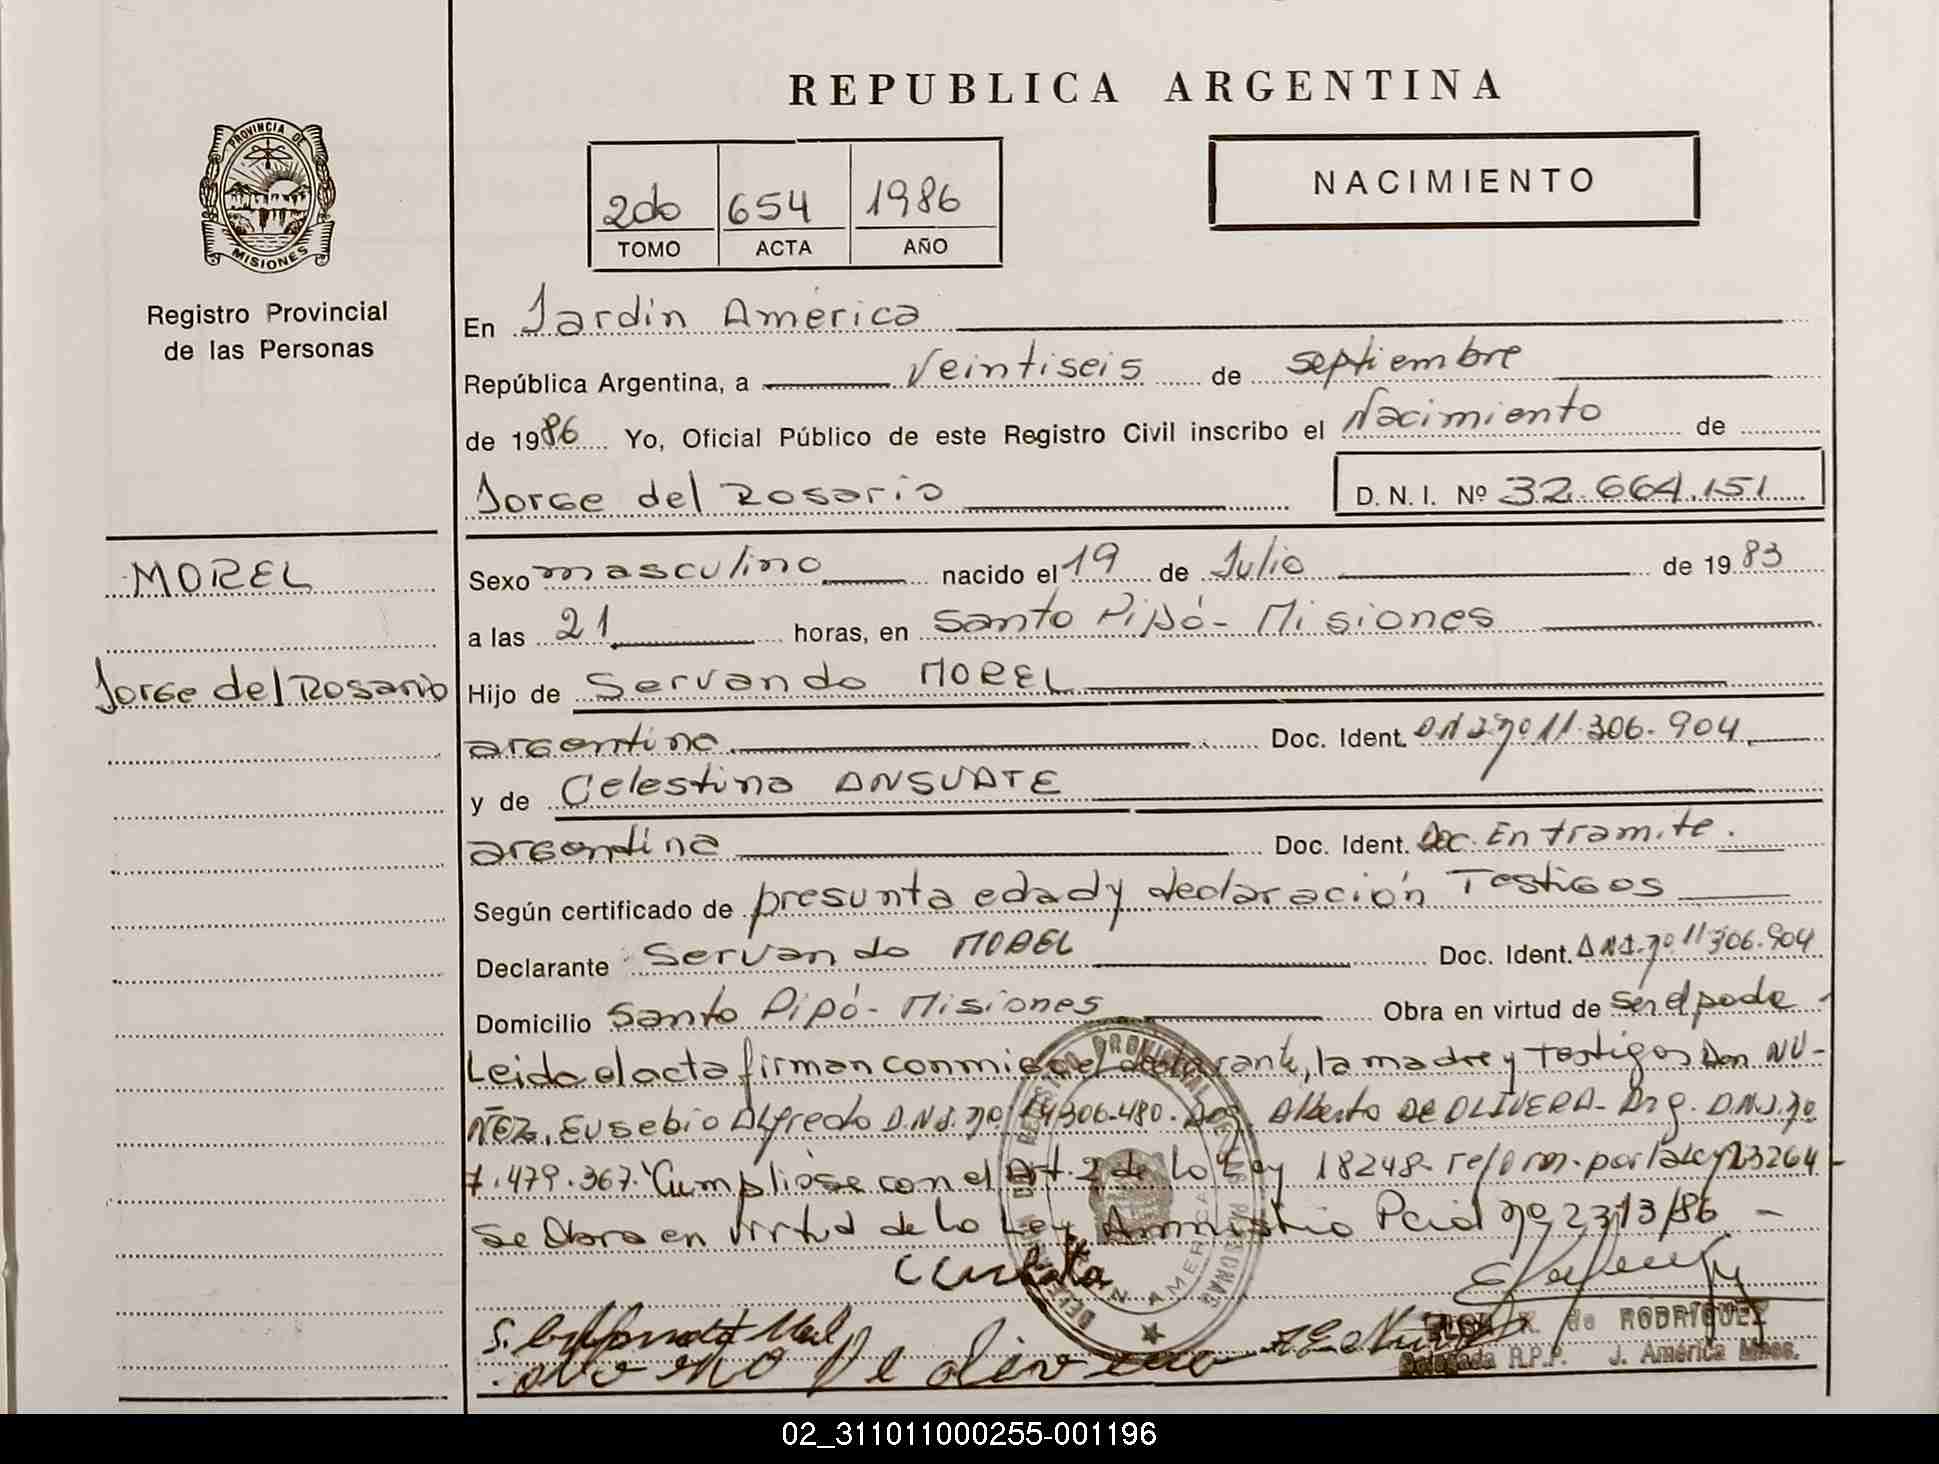 REPUBLICA ARGENTINA
PROVINCIA DE
MISIONES
Registro Provincial
de las Personas
2do 654 1986
TOMO ACTA AÑO
NACIMIENTO
En Jardin América
República Argentina, a Veintiseis de septiembre
de 1986 Yo, Oficial Público de este Registro Civil inscribo el Nacimiento de
Jorge del Rosario D. N. I. Nº 32.664.151
MOREL
Jorge del Rosario
Sexo masculino nacido el 19 de Julio de 1983
a las 21 horas, en Santo Pipó - Misiones
Hijo de Servando MOREL
argentino Doc. Ident. DNI nº 11.306.904
y de Celestina ANSUATE
argentina Doc. Ident. Doc. En tramite.
Según certificado de presunta edad y declaración Testigos
Declarante Servando MOREL Doc. Ident. DNI. nº 11306.904
Domicilio Santo Pipó - Misiones Obra en virtud de ser el padre
Leida el acta firman conmigo el declarante, la madre y Testigos Don NU-
ÑEZ, Eusebio Alfredo D.N.I. nº 14306.480. Arg. Alberto DE OLIVERA - Arg. D.N.I. nº
7.479.367. Cumplióse con el Art. 2 de la Ley 18248 reform. por la Ley 23264 -
se Obra en virtud de la Ley Amnistia Pcial nº 2313/86 -
de RODRIGUEZ
Delegada R.P.P. J. América Mnes.
02_311011000255-001196